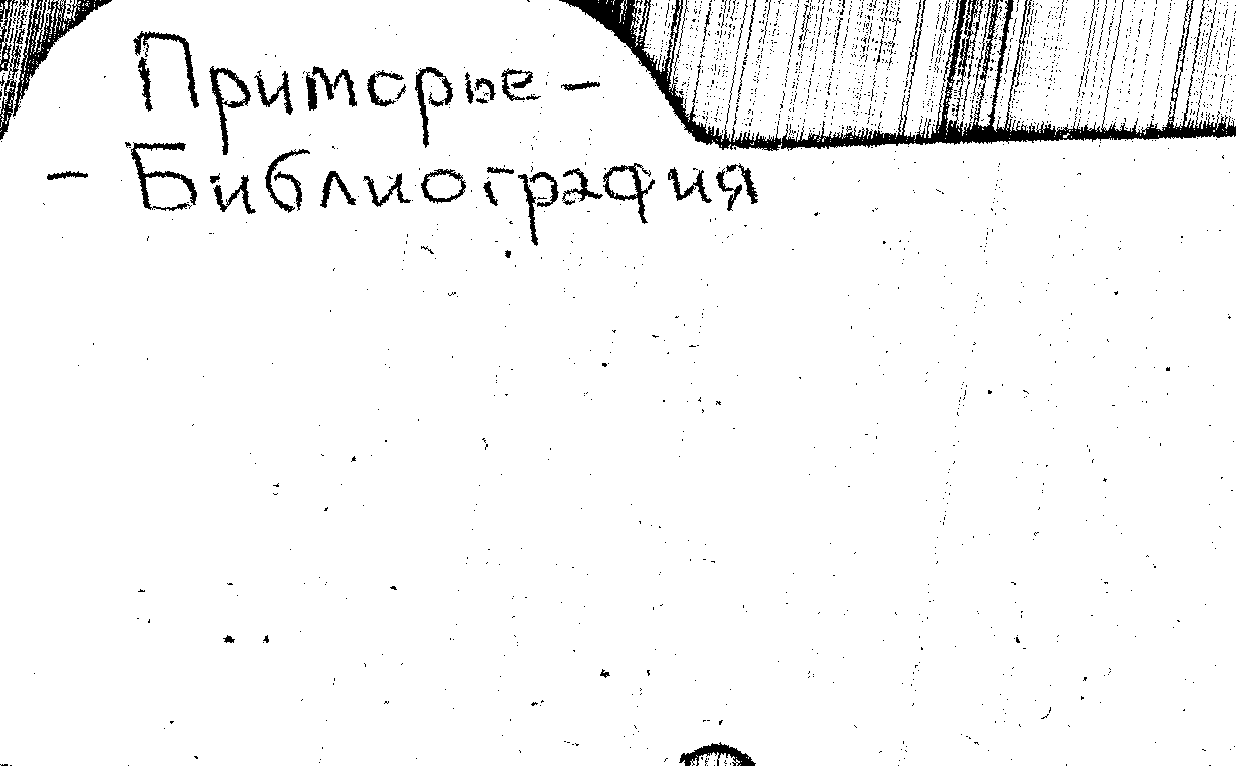 Приморье –
– Библиография